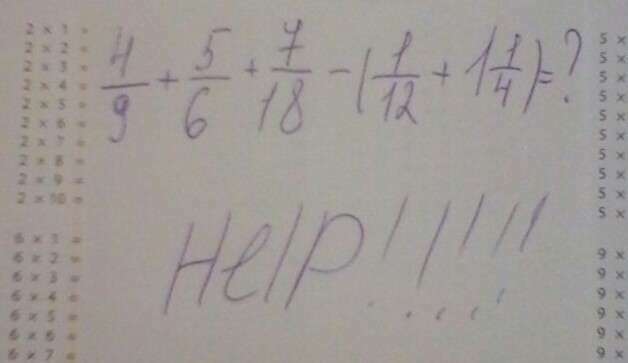 2 x 1 =
2 x 2 =
2 x 3 =
2 x 4 =
2 x 5 =
2 x 6 =
2 x 7 =
2 x 8 =
2 x 9 =
2 x 10 =
6 x 1 =
6 x 2 =
6 x 3 =
6 x 4 =
6 x 5 =
6 x 6 =
6 x 7 =
4/9 + 5/6 + 7/18 - (1/12 + 1 1/4) = ?
Help!!!!!
5 x
5 x
5 x
5 x
5 x
5 x
5 x
5 x
5 x
5 x
9 x
9 x
9 x
9 x
9 x
9 x